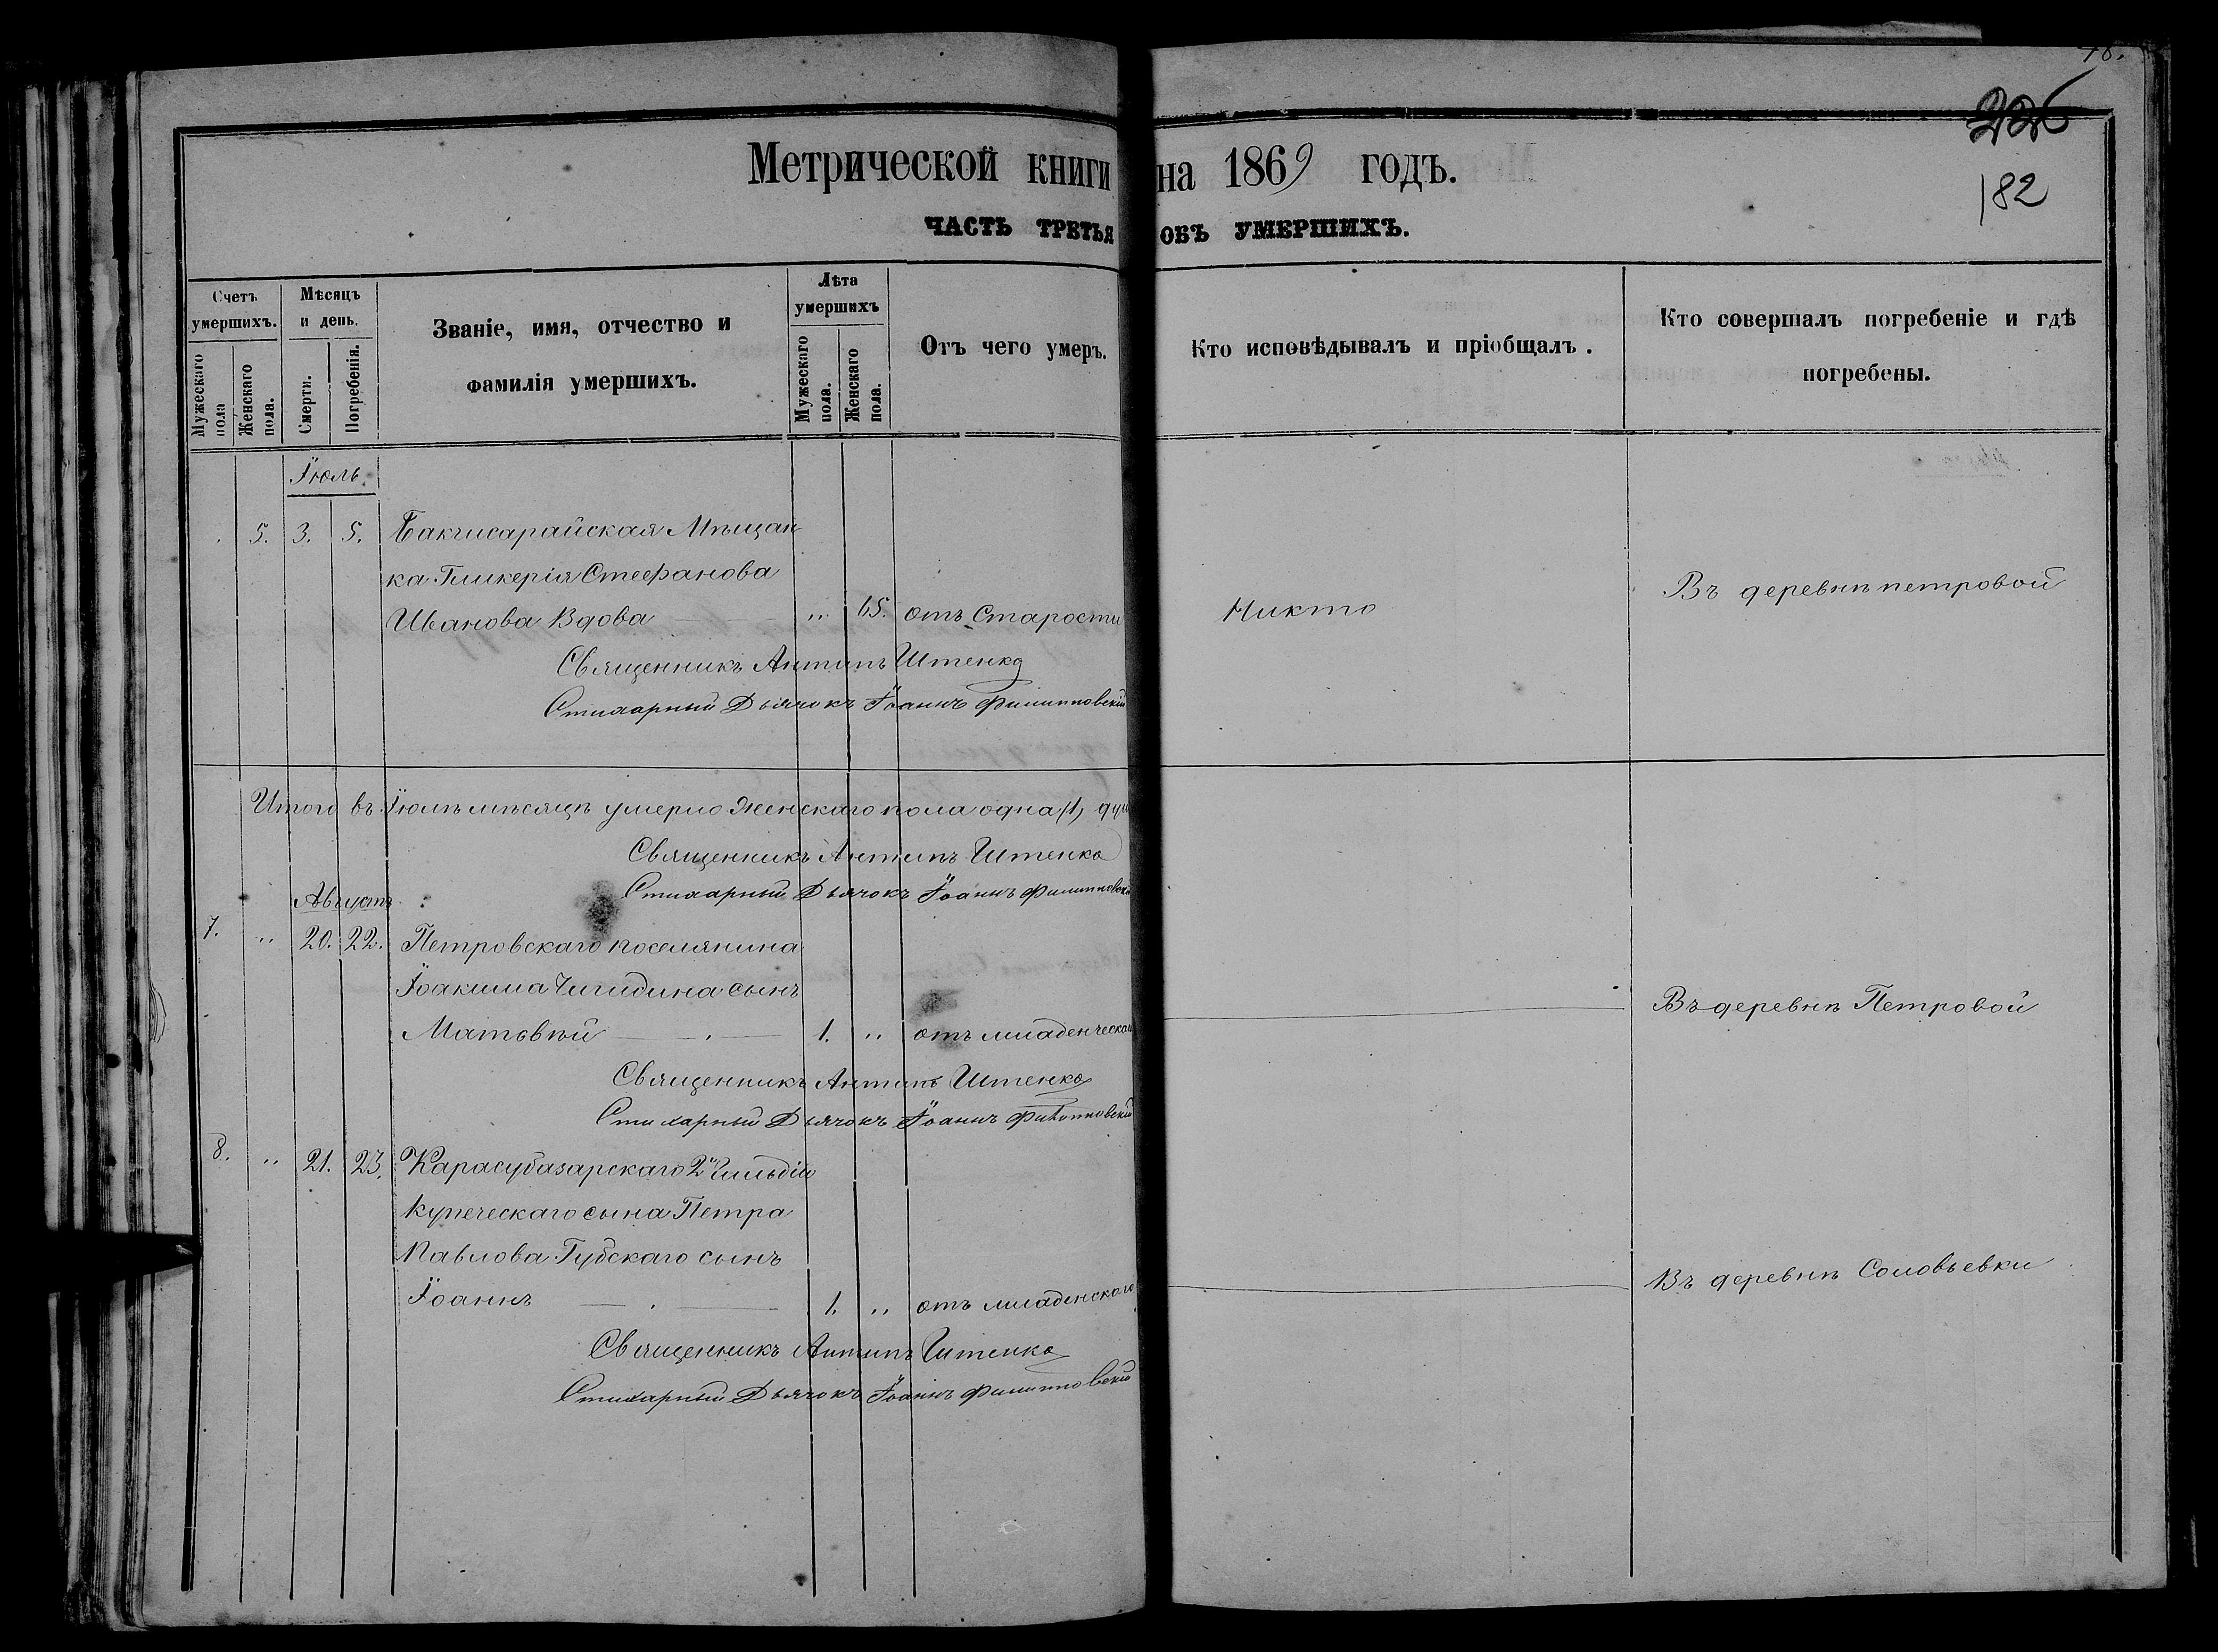 226
182
Метрической книги на 1869 годъ.
ЧАСТЬ ТРЕТЬЯ ОБЪ УМЕРШИХЪ.
Счетъ умершихъ.
Мужескаго пола
Женскаго пола.
Мѣсяцъ и день.
Смерти.
Погребенія.
Званіе, имя, отчество и
фамилія умершихъ.
Лѣта умершихъ
Мужескаго пола.
Женскаго пола.
Отъ чего умеръ.
Кто исповѣдывалъ и пріобщалъ.
Кто совершалъ погребеніе и гдѣ
погребены.
Іюль.
5. 3. 5. Бакчисарайская Мѣщан
ка Гликерія Стефанова
Иванова Вдова " 65. отъ Старости Никто Въ деревнѣ петровой
Священникъ Антипъ Штенко
Стихарный Дьячокъ Іоаннъ Филипповскій
Итого въ Іюлѣ мѣсяцѣ умерло Женскаго пола одна (1)
Священникъ Антипъ Штенко
Стихарный Дьячокъ Іоаннъ Филипповскій
Августъ
7. " 20. 22. Петровскаго поселянина
Іоакима Чигидина сынъ
Матѳвѣй 1. " отъ младенческой Въ деревнѣ Петровой
Священникъ Антипъ Штенко
Стихарный Дьячокъ Іоаннъ Филипповскій
8. " 21. 23. Карасубазарскаго 2й Гильдіи
купеческаго сына Петра
Павлова Губскаго сынъ
Іоаннъ 1. " отъ младенскаго Въ деревнѣ Соловьевки
Священникъ Антипъ Штенко
Стихарный Дьячокъ Іоаннъ Филипповскій